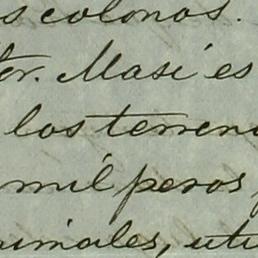 s colonos.
tor. Masi es
los terren
mil pesos
nimales, utu